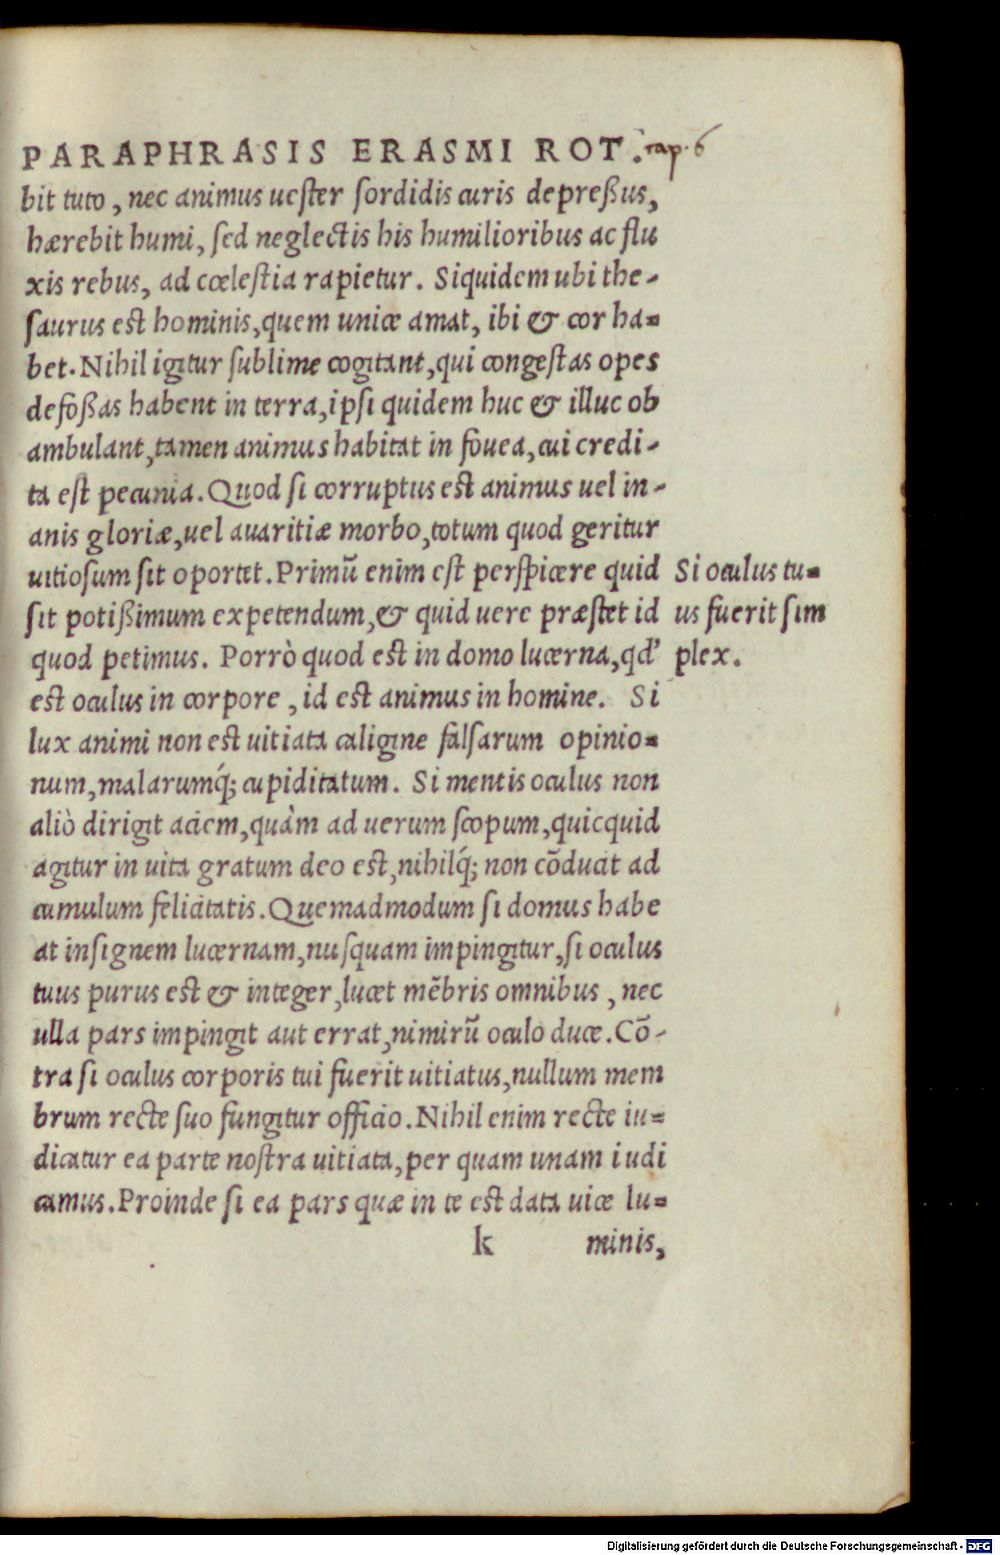 PARAPHRASIS ERASMI ROT. cap. 6
bit tuto, nec animus uester ſordidis curis depreßus,
hærebit humi, ſed neglectis his humilioribus ac flu
xis rebus, ad cœleſtia rapietur. Siquidem ubi the-
ſaurus est hominis, quem unice amat, ibi & cor ha=
bet. Nihil igitur ſublime cogitant, qui congeſtas opes
defoßas habent in terra, ipſi quidem huc & illuc ob
ambulant, tamen animus habitat in fouea, cui credi-
ta eſt pecunia. Quod ſi corruptus est animus uel in-
anis gloriæ, uel auaritiæ morbo, totum quod geritur
uitioſum ſit oportet. Primū enim eſt perſpicere quid
ſit potißimum expetendum, & quid uere præſtet id
quod petimus. Porrò quod est in domo lucerna, qd'
est oculus in corpore, id est animus in homine. Si
lux animi non est uitiata caligine falſarum opinio=
num, malarumq́; cupiditatum. Si mentis oculus non
aliò dirigit aciem, quàm ad uerum ſcopum, quicquid
agitur in uita gratum deo est, nihilq́; non cōducit ad
cumulum felicitatis. Quemadmodum ſi domus habe
at inſignem lucernam, nuſquam impingitur, ſi oculus
tuus purus est & integer, lucet mēbris omnibus, nec
ulla pars impingit aut errat, nimirū oculo duce. Cō-
tra ſi oculus corporis tui fuerit uitiatus, nullum mem
brum recte ſuo fungitur officio. Nihil enim recte iu=
dicatur ea parte noſtra uitiata, per quam unam iudi
camus. Proinde ſi ea pars quæ in te est data uice lu=
k minis,
Si oculus tu=
us fuerit ſim
plex.
Digitalisierung gefördert durch die Deutsche Forschungsgemeinschaft - DFG